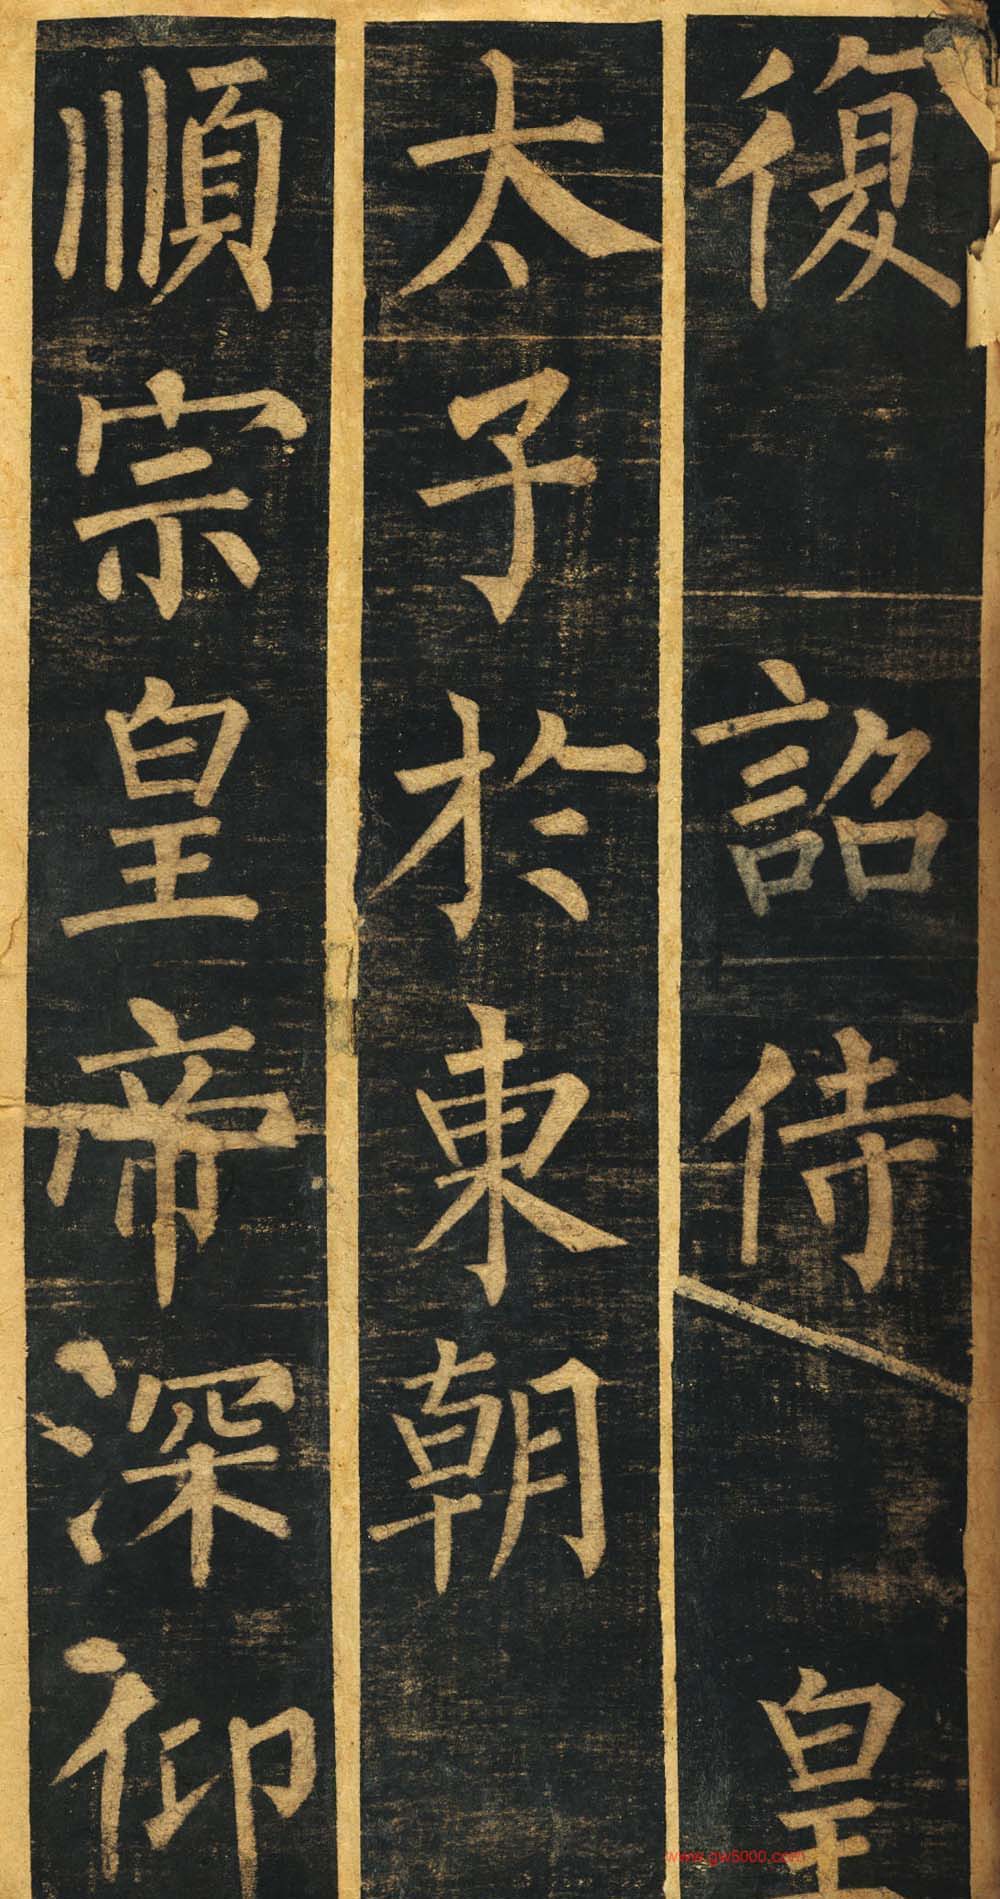 復 詔侍 皇
太子於東朝
順宗皇帝深仰
www.gw5000.com